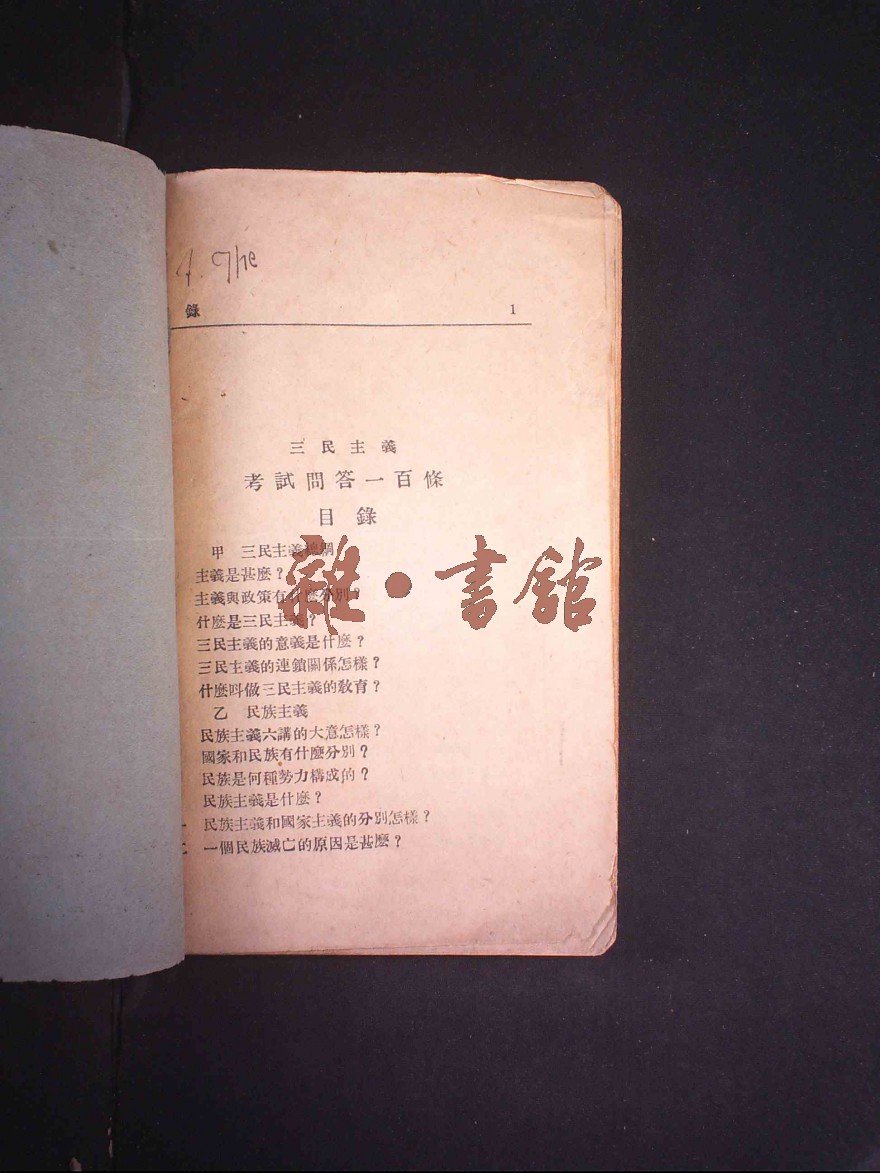 錄 1
三民主義
考試問答一百條
目錄
甲 三民主義總綱
主義是甚麼？
主義與政策有什麼分別？
什麼是三民主義？
三民主義的意義是什麼？
三民主義的連鎖關係怎樣？
什麼叫做三民主義的敎育？
乙 民族主義
民族主義六講的大意怎樣？
國家和民族有什麼分別？
民族是何種勢力構成的？
民族主義是什麼？
民族主義和國家主義的分別怎樣？
一個民族滅亡的原因是甚麼？
雜·書館